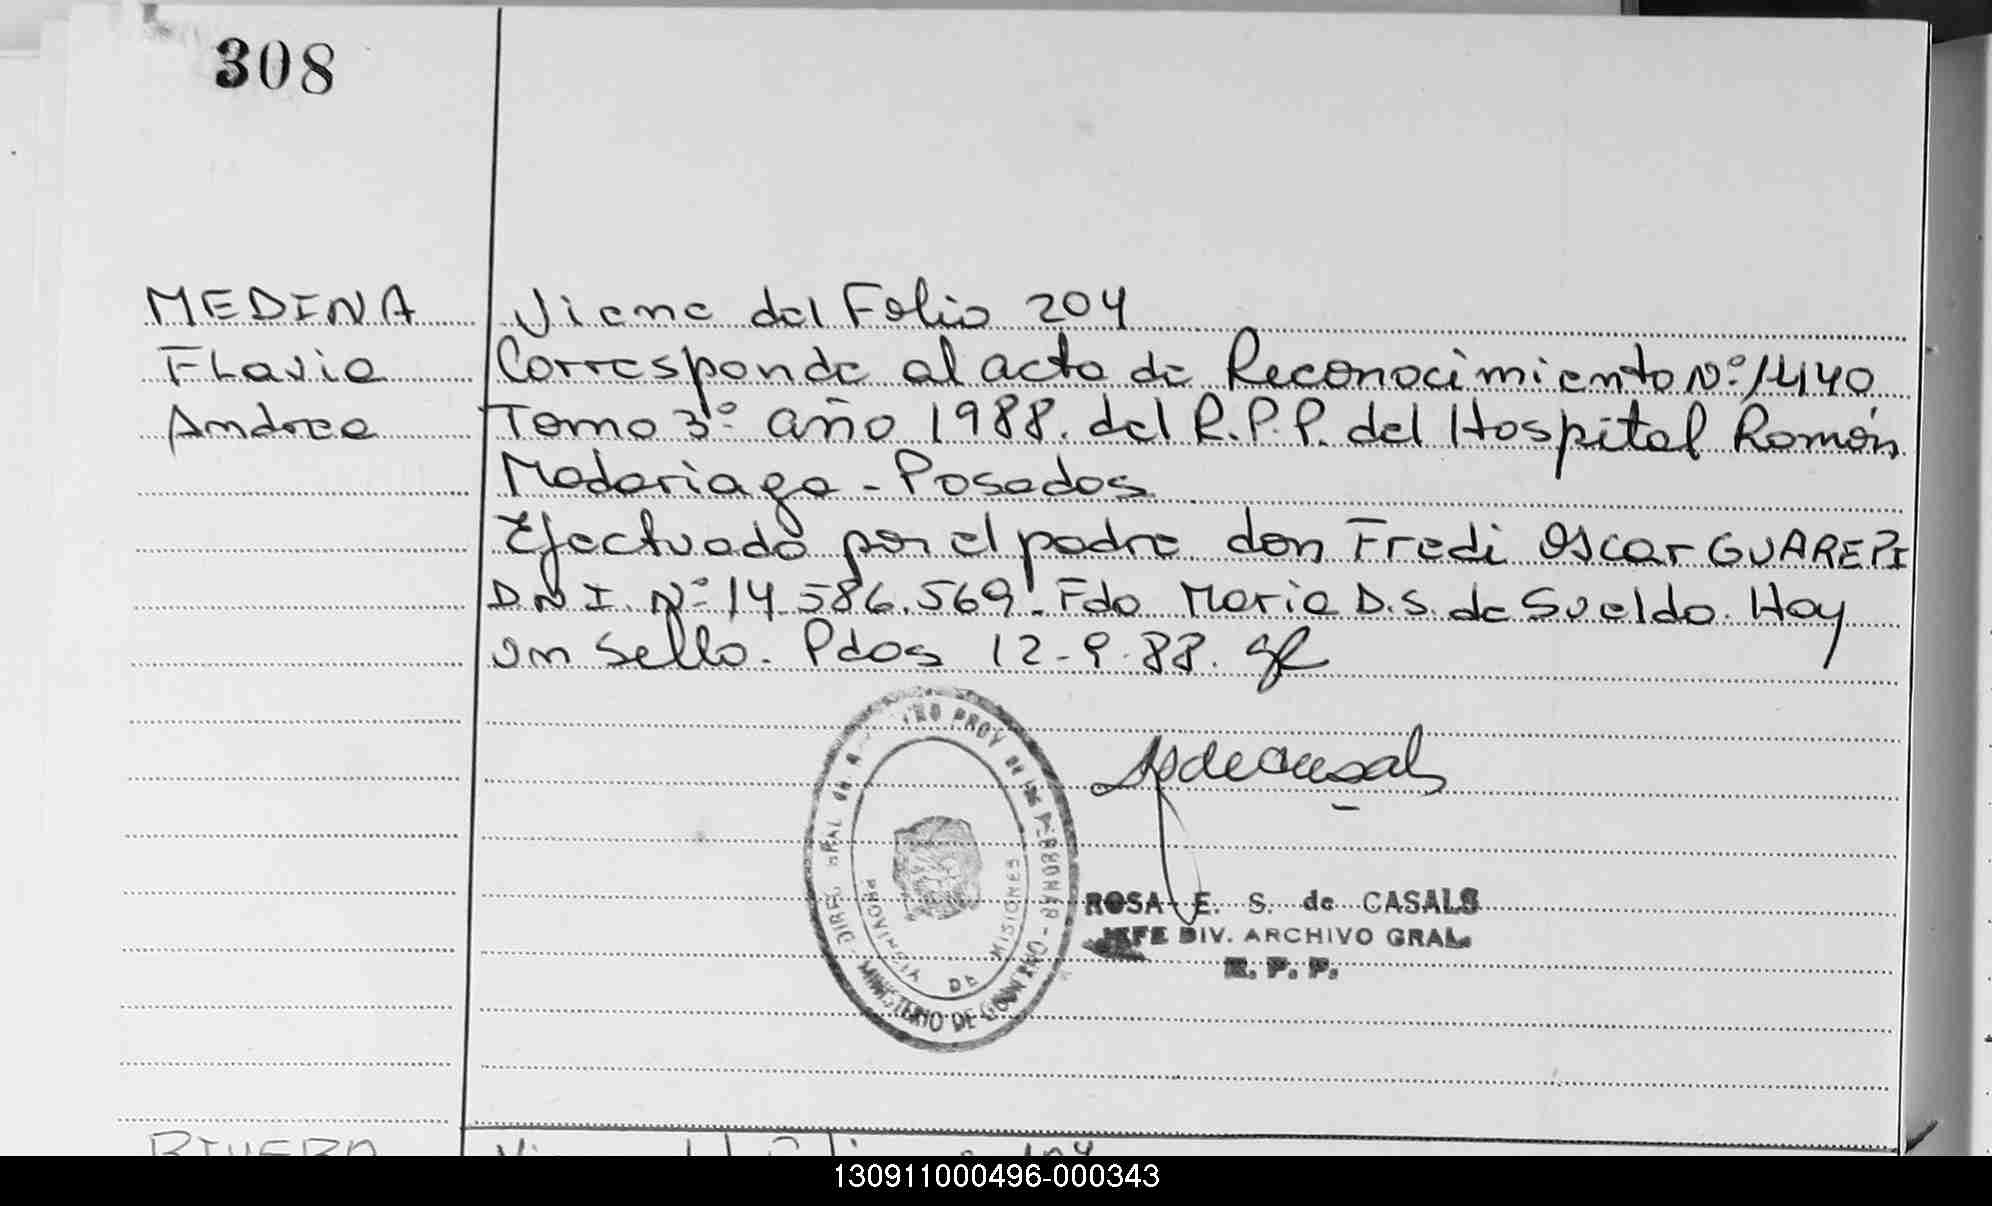 308
MEDINA
Flavia
Andrea
Viene del Folio 204
Corresponde al acta de Reconocimiento Nº 1440
Tomo 3º año 1988. del R.P.P. del Hospital Ramón
Madariaga - Posadas
Efectuado por el padre don Fredi Oscar GUAREPI
DNI. Nº 14.586.569. Fdo Maria D.S. de Sueldo. Hay
un sello. Pdas 12-9-88.
PROV DE LAS PERSONAS
MINISTERIO DE GOBIERNO
PROVINCIA DE MISIONES
ROSA E. S. de CASALS
JEFE DIV. ARCHIVO GRAL.
R. P. P.
RIVERA
130911000496-000343